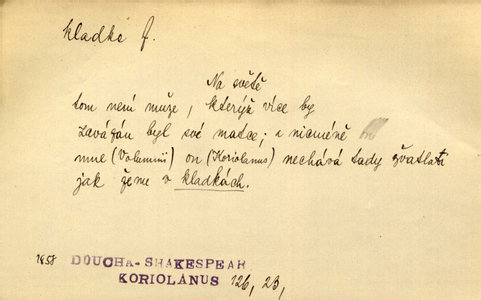 kladka f.
Na světě
tom není muže, kterýž více by
zavázán byl své matce; a nicméně
mne (Volumnii) on (Koriolanus) nechává tady žvatlati
jak ženu v kladkách.
1858 DOUCHA-SHAKESPEAR
KORIOLANUS 126, 23,